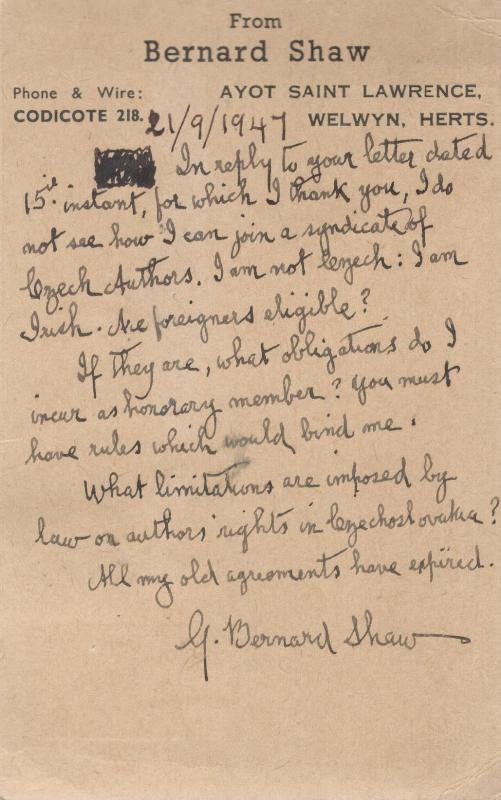 From
Bernard Shaw
Phone & Wire: AYOT SAINT LAWRENCE,
CODICOTE 218. 21/9/1947 WELWYN, HERTS.
In reply to your letter dated
15th instant, for which I thank you, I do
not see how I can join a syndicate of
Czech Authors. I am not Czech: I am
Irish. Are foreigners eligible?
If they are, what obligations do I
incur as honorary member? You must
have rules which would bind me.
What limitations are imposed by
law on authors' rights in Czechoslovakia?
All my old agreements have expired.
G. Bernard Shaw